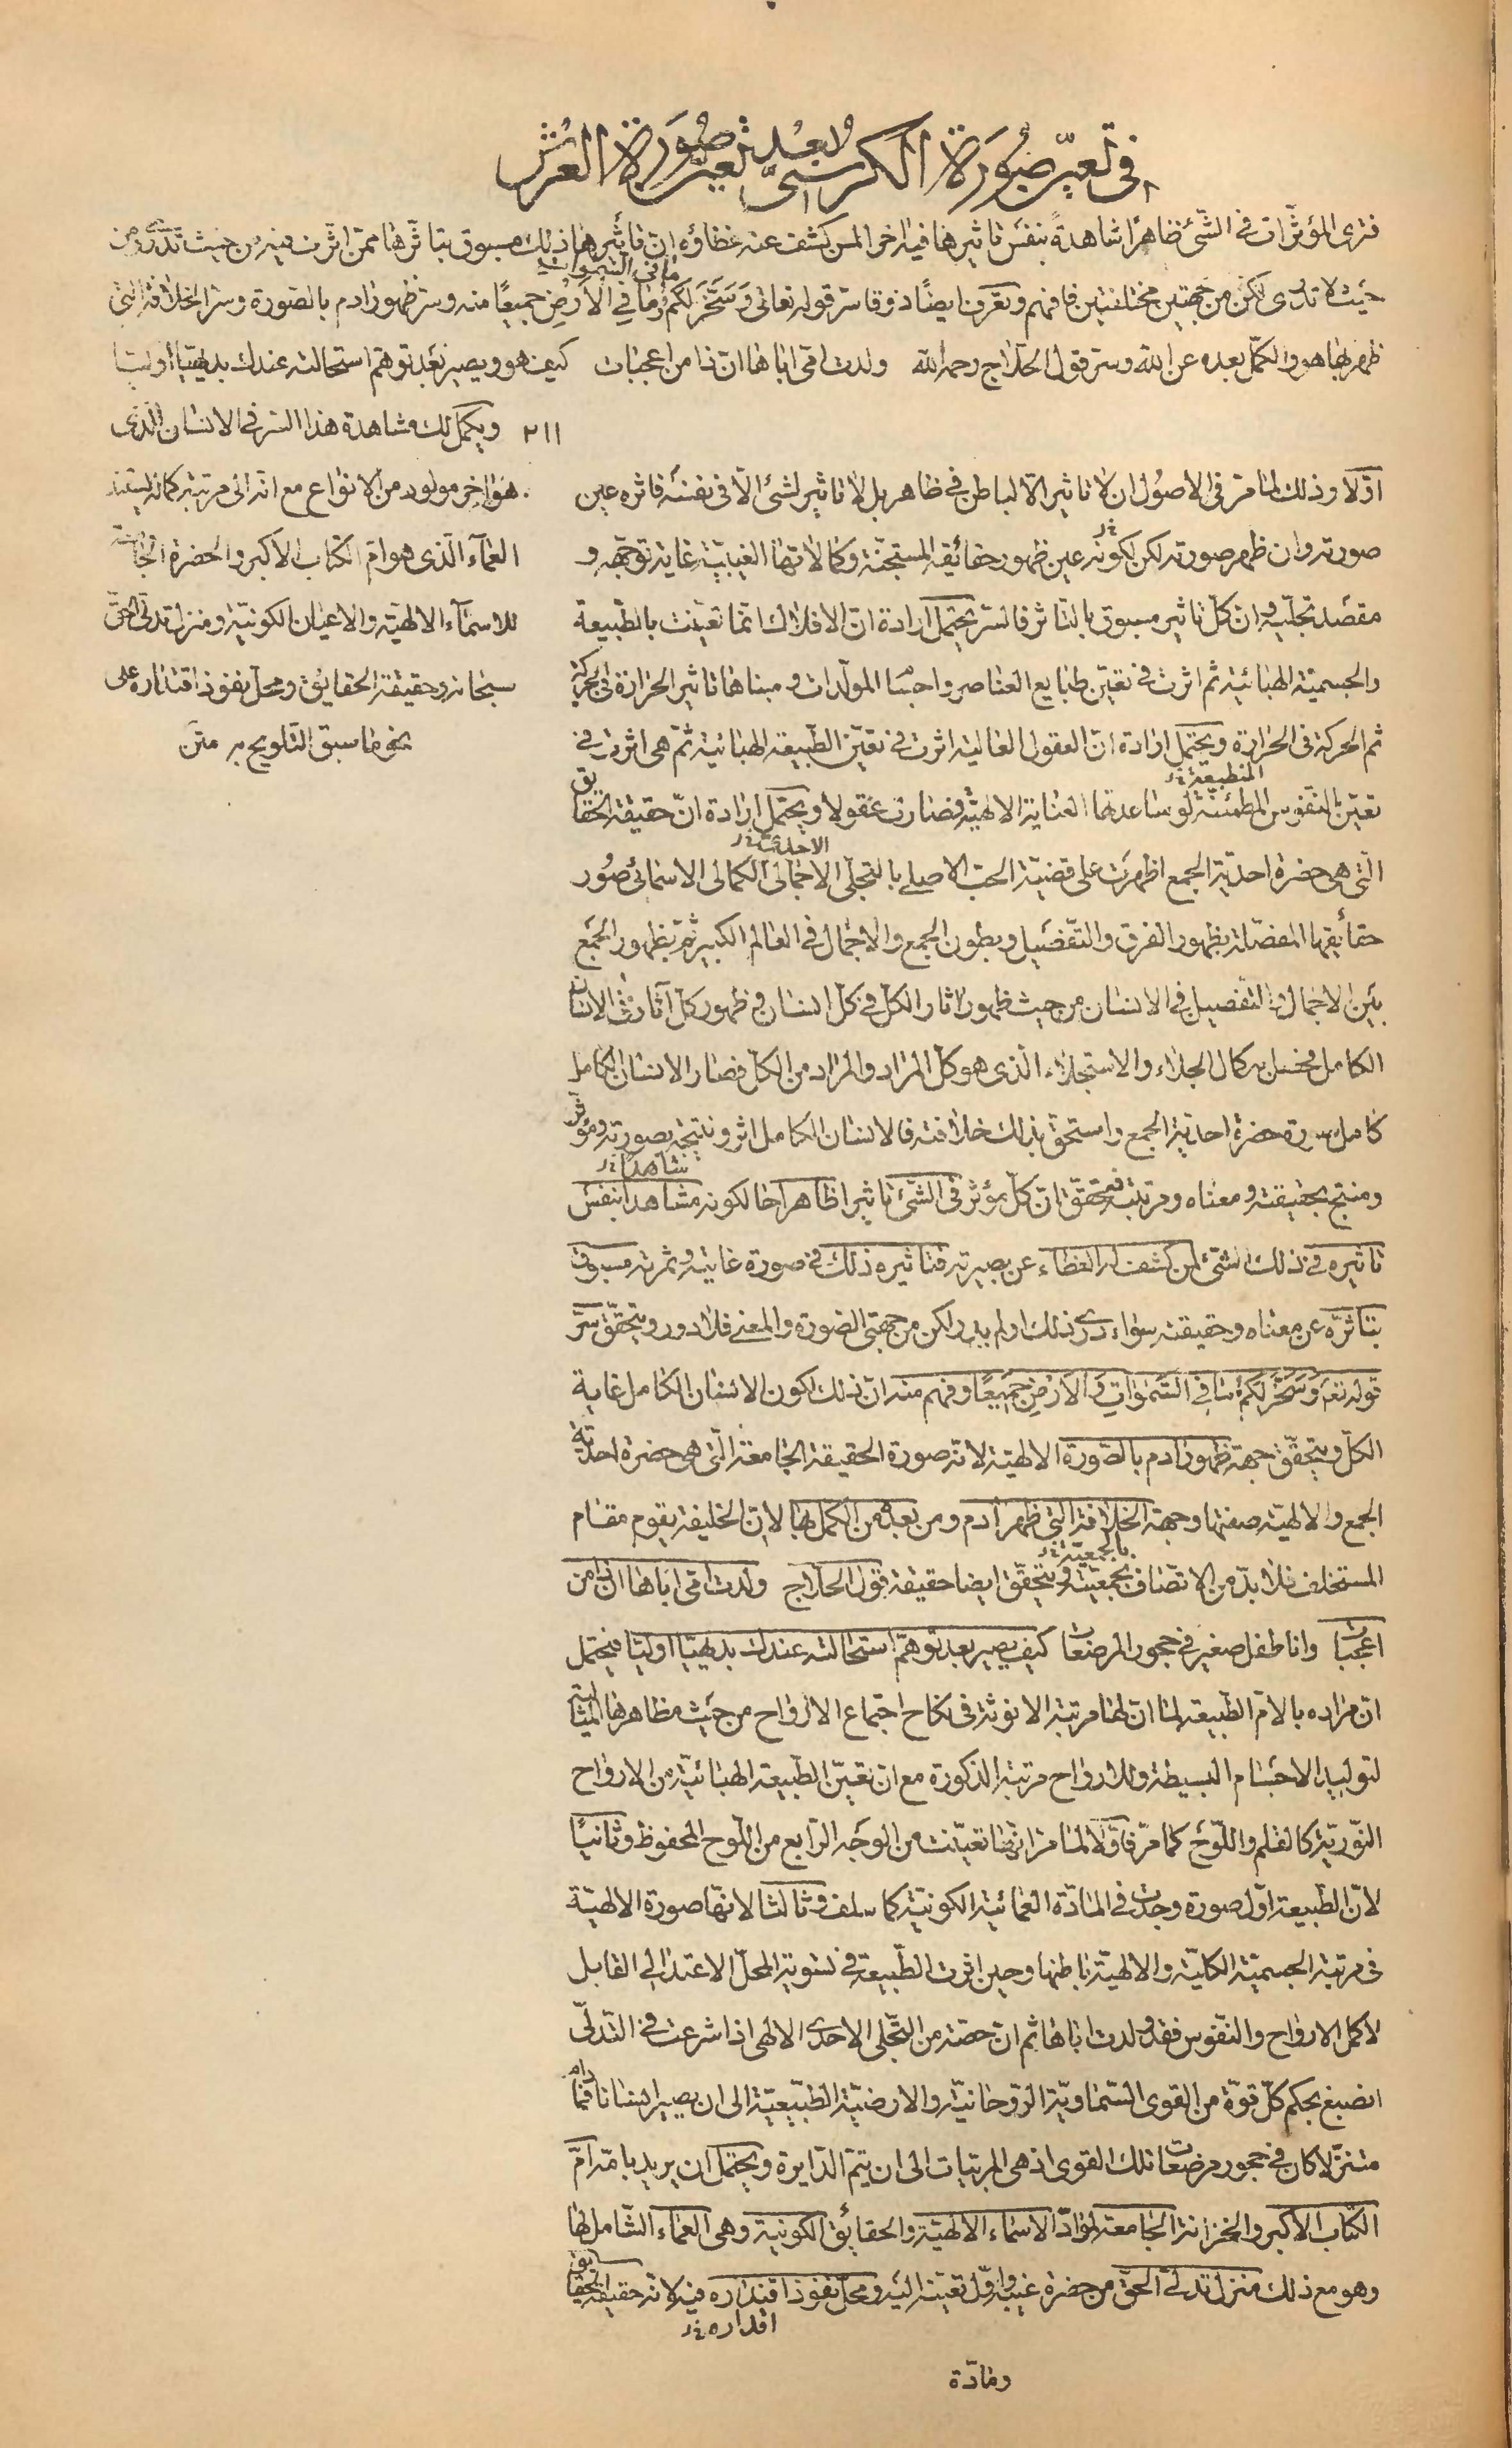 في تعيّن صورة الكرسيّ بعد تعيّن صورة العرش
فترى المؤثّرات في الشّئ ظاهرا شاهدةً بنفس تاثيرها فيه اخر المن كشف عنه غطاؤه ان تأثيرها ذلك مسبوق بتاثّرها ممن اثّرت فيه من حيث تدرى ومن
ما في السموات
حيث لا تدرى لكن من جهتين مختلفتين فافهم وتعرف ايضًا ذوقا سرّ قوله تعالى وَسَخَّرَ لَكُم وَمَا فِي الاَرْضِ جميعًا منه وسرّ ظهور ادم بالصورة وسرّ الخلافة التي
ظهر بها هو والكمّل بعده عن الله وسرّ قول الحلاج رحمه الله ولدت امّي اباها انّ ذا من اعجبات كيف هو ويصير بعد توهّم استحالته عندك بديهيّا اوليّا
٢١١ ويكمل لك مشاهدة هذا السرّ في الانسان الذى
هو اخر مولود من الانواع مع انه الى مرتبة كماله يستند
العماء الّذى هو امّ الكتاب الاكبر والحضرة الجامعة
للاسماء الالهيّة والاعيان الكونيّة ومنزل تدلّى الحقّ
سبحانه وحقيقة الحقايق ومحلّ نفوذ اقتداره على
نحو ما سبق التلويح به متن
اوّلا وذلك لما مرّ في الاصول ان لا تاثير الّا لباطن في ظاهر بل لا تاثير لشئ الّا في نفسه فاثره عين
صورته وان ظهر صورته لكن لكونه عين ظهور حقائقه المستجنّة وكمالاتها الغيبيّة غاية توجّهه و
مقصد تجلّيه وان كلّ تاثير مسبوق بالتاثر فالسرّ يحتمل ارادة انّ الافلاك انّما تعيّنت بالطّبيعة
والجسميّة الهبائية ثم اثرت في تعيّن طبايع العناصر واجسام المولّدات ومبناها تاثير الحرارة في الحركة
ثم الحركة في الحرارة ويحتمل ارادة انّ العقول العالية اثرت في تعيّن الطّبيعة الهبائية ثمّ هى اثرت في
المنطبعة
تعيّن النفوس المطمئنّة لو ساعدتها العناية الالهيّة فصارت عقولا ويحتمل ارادة انّ حقيقة الحقايق
الّتى هى حضرة احديّة الجمع اظهرت على قضيّة الحبّ الاصلي بالتجلّى الاجمالى الكمالى الاسمائى صُور
حقائقها المفصّلة بظهور الفرق والتّفصيل وبطون الجمع والاجمال في العالم الكبير ثم بظهور الجمع
بين الاجمال والتّفصيل في الانسان من حيث ظهور اثار الكلّ في كلّ انسان وظهور كلّ آثاره في الانسان
الكامل فحصل به كمال الجلاء والاستجلاء الّذى هو كلّ المراد والمراد من الكلّ فصار الانسان الكامل
كامل صورة حضرة احديّة الجمع واستحق بذلك خلافته فالانسان الكامل اثر ونتيجة بصورته ومؤثّر
شاهدا
ومنتج بحقيقته ومعناه ومرتبته فتحقّق انّ كلّ مؤثّر في الشّئ تاثيرا ظاهرا حالكونه مشاهدا بنفس
تاثيره في ذلك الشئ لمن كشف له الغطاء عن بصيرته فتاثيره ذلك في صورة غايته وثمرته مسبوق
بتاثرّه عن معناه وحقيقته سواء درى ذلك او لم يدر ولكن من جهتى الصّورة والمعنى فلا دور ويتحقّق سرّ
قوله تعَ وَسَخَّرَ لَكُم مَا فِي السَّمٰوَاتِ وَالاَرْضِ جَمِيعًا وفهم منه انّ ذلك لكون الانسان الكامل غاية
الكلّ ويتحقّق جهة ظهور ادم بالصّورة الالهيّة لانّه صورة الحقيقة الجامعة الّتى هى حضرة احديّة
الجمع والالهيّة صفتها وجهة الخلافة التى ظهر ادم ومن بعده من الكمل بها لانّ الخليفة يقوم مقام
بالجمعيّة
المستخلف فلا بدّ من الاتّصاف بجمعيّته ويتحقّق ايضا حقيقة قول الحلاج ولدت امّي اباها انّ ذا من
اعجبات وانا طفل صغير في حجور المرضعات كيف يصير بعد توهّم استحالته عندك بديهيّا اوليّا فيحتمل
ان مراده بالامّ الطّبيعة لما انّ لها مرتبة الانوثة في نكاح اجتماع الارواح من حيث مظاهرها المثالية
لتوليد الاجسام البسيطة وللارواح مرتبة الذكورة مع ان تعيّن الطّبيعة الهبائيّة من الارواح
النّوريّة كالقلم واللّوح كما مرّ فاوّلا لما مرّ انّها تعيّنت من الوجه الرّابع من اللّوح المحفوظ وثانيًا
لانّ الطّبيعة اوّل صورة وجدت في المادّة العمائيّة الكونيّة كما سلف وثالثا لانّها صورة الالهيّة
في مرتبة الجسميّة الكليّة والالهيّة باطنها وحين اثرت الطّبيعة في تسوية المحلّ الاعتدالى القابل
لاكمل الارواح والنّفوس فقد ولدت اباها ثم انّ حصّة من التّجلّى الاحدى الالهى اذا شرعت في التّدلّى
انصبغ بحكم كلّ قوّة من القوى السّماويّة الرّوحانيّة والارضيّة الطّبيعيّة الى ان يصير انسانا فما دام
متنزّلا كان في حجور مرضعات تلك القوى اذ هى المربّيات الى ان يتمّ الدّايرة ويحتمل ان يريد بامّه امّ
الكتاب الاكبر والخزانة الجامعة لموادّ الاسماء الالهيّة والحقائق الكونيّة وهى العماء الشّامل لها
وهو مع ذلك منزل تدلّى الحقّ من حضرة غيبه واوّل تعيّنه اليه ومحلّ نفوذ اقتداره فيه لانّه حقيقة الحقايق
اقداره
ومادّة